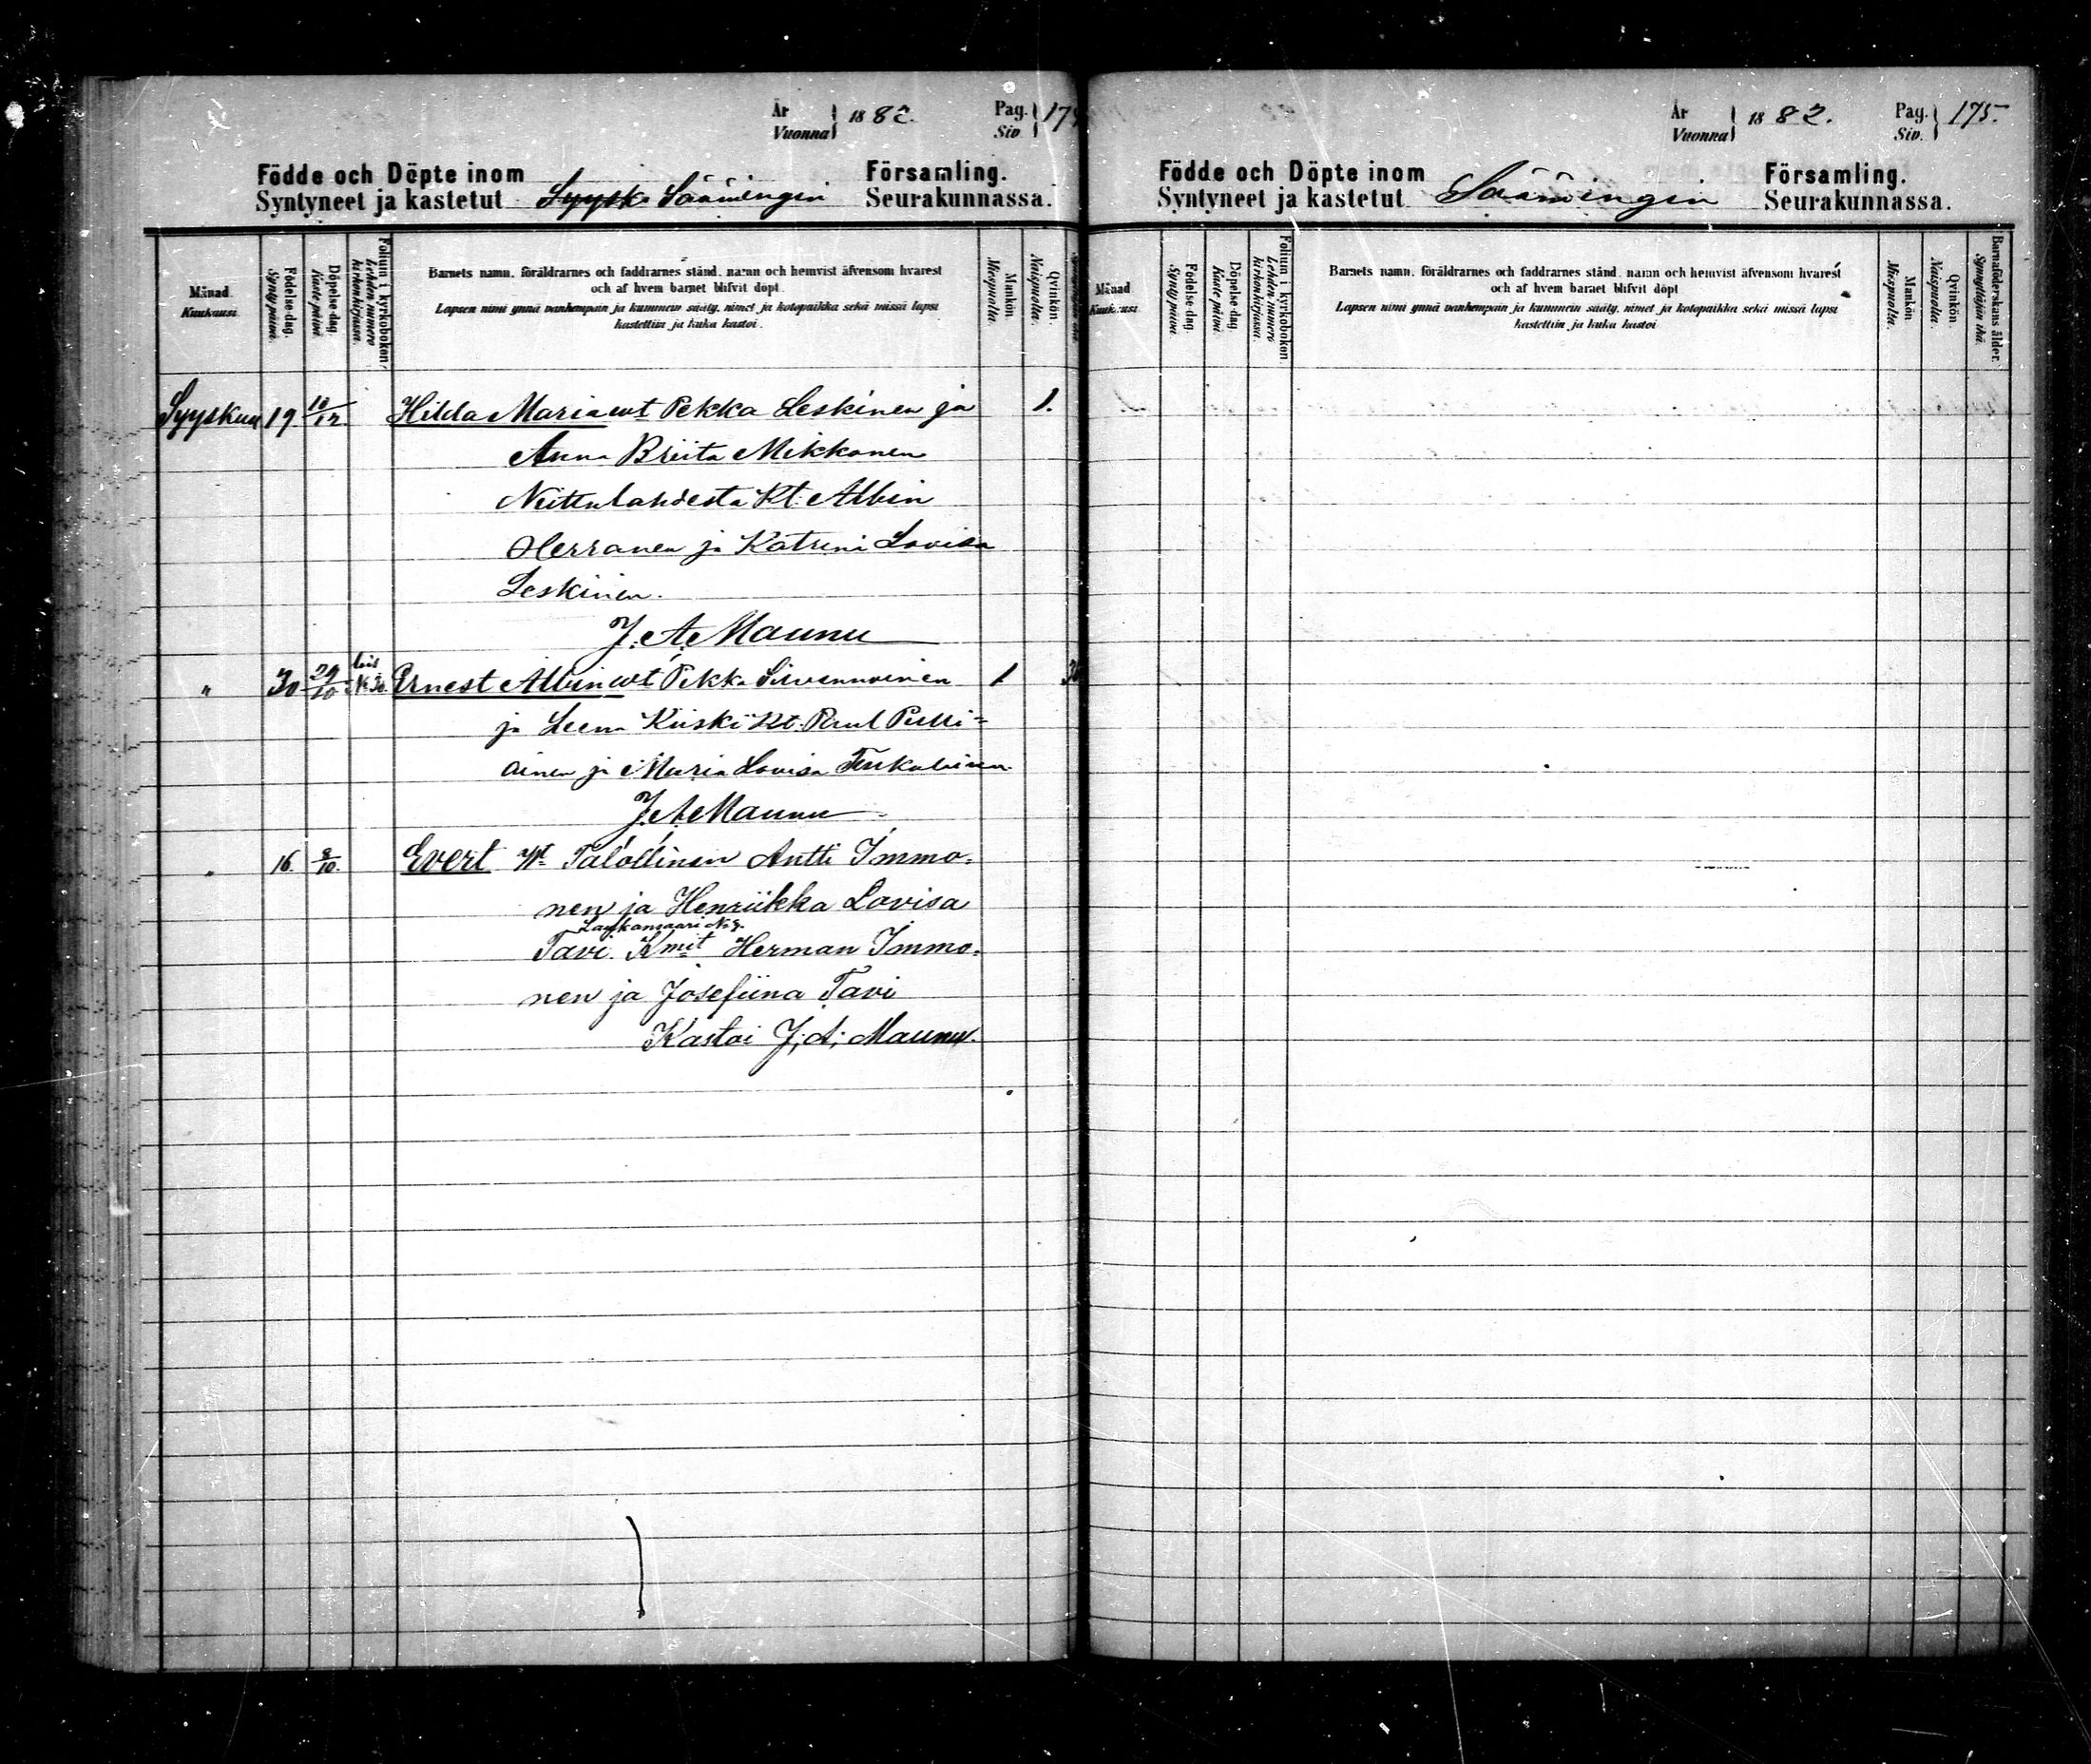 År
Vuonna
1882.
Pag.
Siv.
174
Födde och Döpte inom
Syntyneet ja kastetut
Syysk. Säämingin
Församling.
Seurakunnassa.
Månad.
Kuukausi
Födelse-dag.
Synty päivä.
Döpelse-dag.
Kaste päivä.
Folium i kyrkoboken.
Lehden numero
kirkonkirjassa.
Barnets namn, föräldrarnes och faddrarnes stånd, namn och hemvist äfvensom hvarest
och af hvem barnet blifvit döpt.
Lapsen nimi ynnä vanhempain ja kummein sääty, nimet ja kotopaikka sekä missä lapsi
kastettiin ja kuka kastoi.
Mankön.
Miespuolta.
Qvinkön.
Naispuolta.
Syyskuu 19. 10/12. Hilda Maria wt Pekka Leskinen ja 1.
Anna Briita Mikkonen
Kt. Albin
Herranen ja Katrini Lovisa
Leskinen.
J. A. Maunu
" 30 29/10 lois N:30. Ernest Albin wt Pekka 1
ja Leena Kiiski Kt. Paul Pelli=
äinen ja Maria Lovisa
J. A. Maunu
" 16. 8/10. Evert Wt Talollinen Antti Immo=
nen ja Henriikka Lovisa
Laukansaari N:9.
Tavi. Kmit Herman Immo=
nen ja Josefiina Tavi
Kastoi J; A; Maunu.
År
Vuonna
1882.
Pag.
Siv.
175.
Födde och Döpte inom
Syntyneet ja kastetut
Säämingin
Församling.
Seurakunnassa.
Månad
Kuukausi
Födelse-dag.
Synty päivä.
Döpelse-dag.
Kaste päivä.
Folium i kyrkoboken.
Lehden numero
kirkonkirjassa.
Barnets namn, föräldrarnes och faddrarnes stånd, namn och hemvist äfvensom hvarest
och af hvem barnet blifvit döpt
Lapsen nimi ynnä vanhempain ja kummein sääty, nimet ja kotopaikka sekä missä lapsi
kastettiin ja kuka kastoi
Mankön
Miespuolta.
Qvinkön
Naispuolta.
Barnaföderskans ålder.
Synnyttäjän ikä.